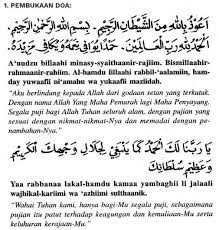 1. PEMBUKAAN DOA:
اَعُوْذُ بِاللهِ مِنَ الشَّيْطَانِ الرَّجِيْمِ. بِسْمِ اللهِ الرَّحْمٰنِ الرَّحِيْمِ.
اَلْحَمْدُ لِلّٰهِ رَبِّ الْعَالَمِيْنَ. حَمْدًا يُوَافِيْ نِعَمَهُ وَيُكَافِئُ مَزِيْدَهُ
A'uudzu billaahi minasy-syaithaanir-rajiim. Bismillaahir-
rahmaanir-rahiim. Al-hamdu lillaahi rabbil-'aalamiin, ham-
day yuwaafii ni'amahu wa yukaafii maziidah.
"Aku berlindung kepada Allah dari godaan setan yang terkutuk.
Dengan nama Allah Yang Maha Pemurah lagi Maha Penyayang.
Segala puji bagi Allah Tuhan seluruh alam, dengan pujian yang
sesuai dengan nikmat-nikmat-Nya dan memadai dengan pe-
nambahan-Nya."
يَا رَبَّنَا لَكَ الْحَمْدُ كَمَا يَنْبَغِيْ لِجَلَالِ وَجْهِكَ الْكَرِيْمِ
وَعَظِيْمِ سُلْطَانِكَ
Yaa rabbanaa lakal-hamdu kamaa yambaghii li jalaali
wajhikal-kariimi wa 'azhiimi sulthaanik.
"Wahai Tuhan kami, hanya bagi-Mu segala puji, sebagaimana
pujian itu patut terhadap keagungan dan kemuliaan-Mu serta
keluhuran kerajaan-Mu."